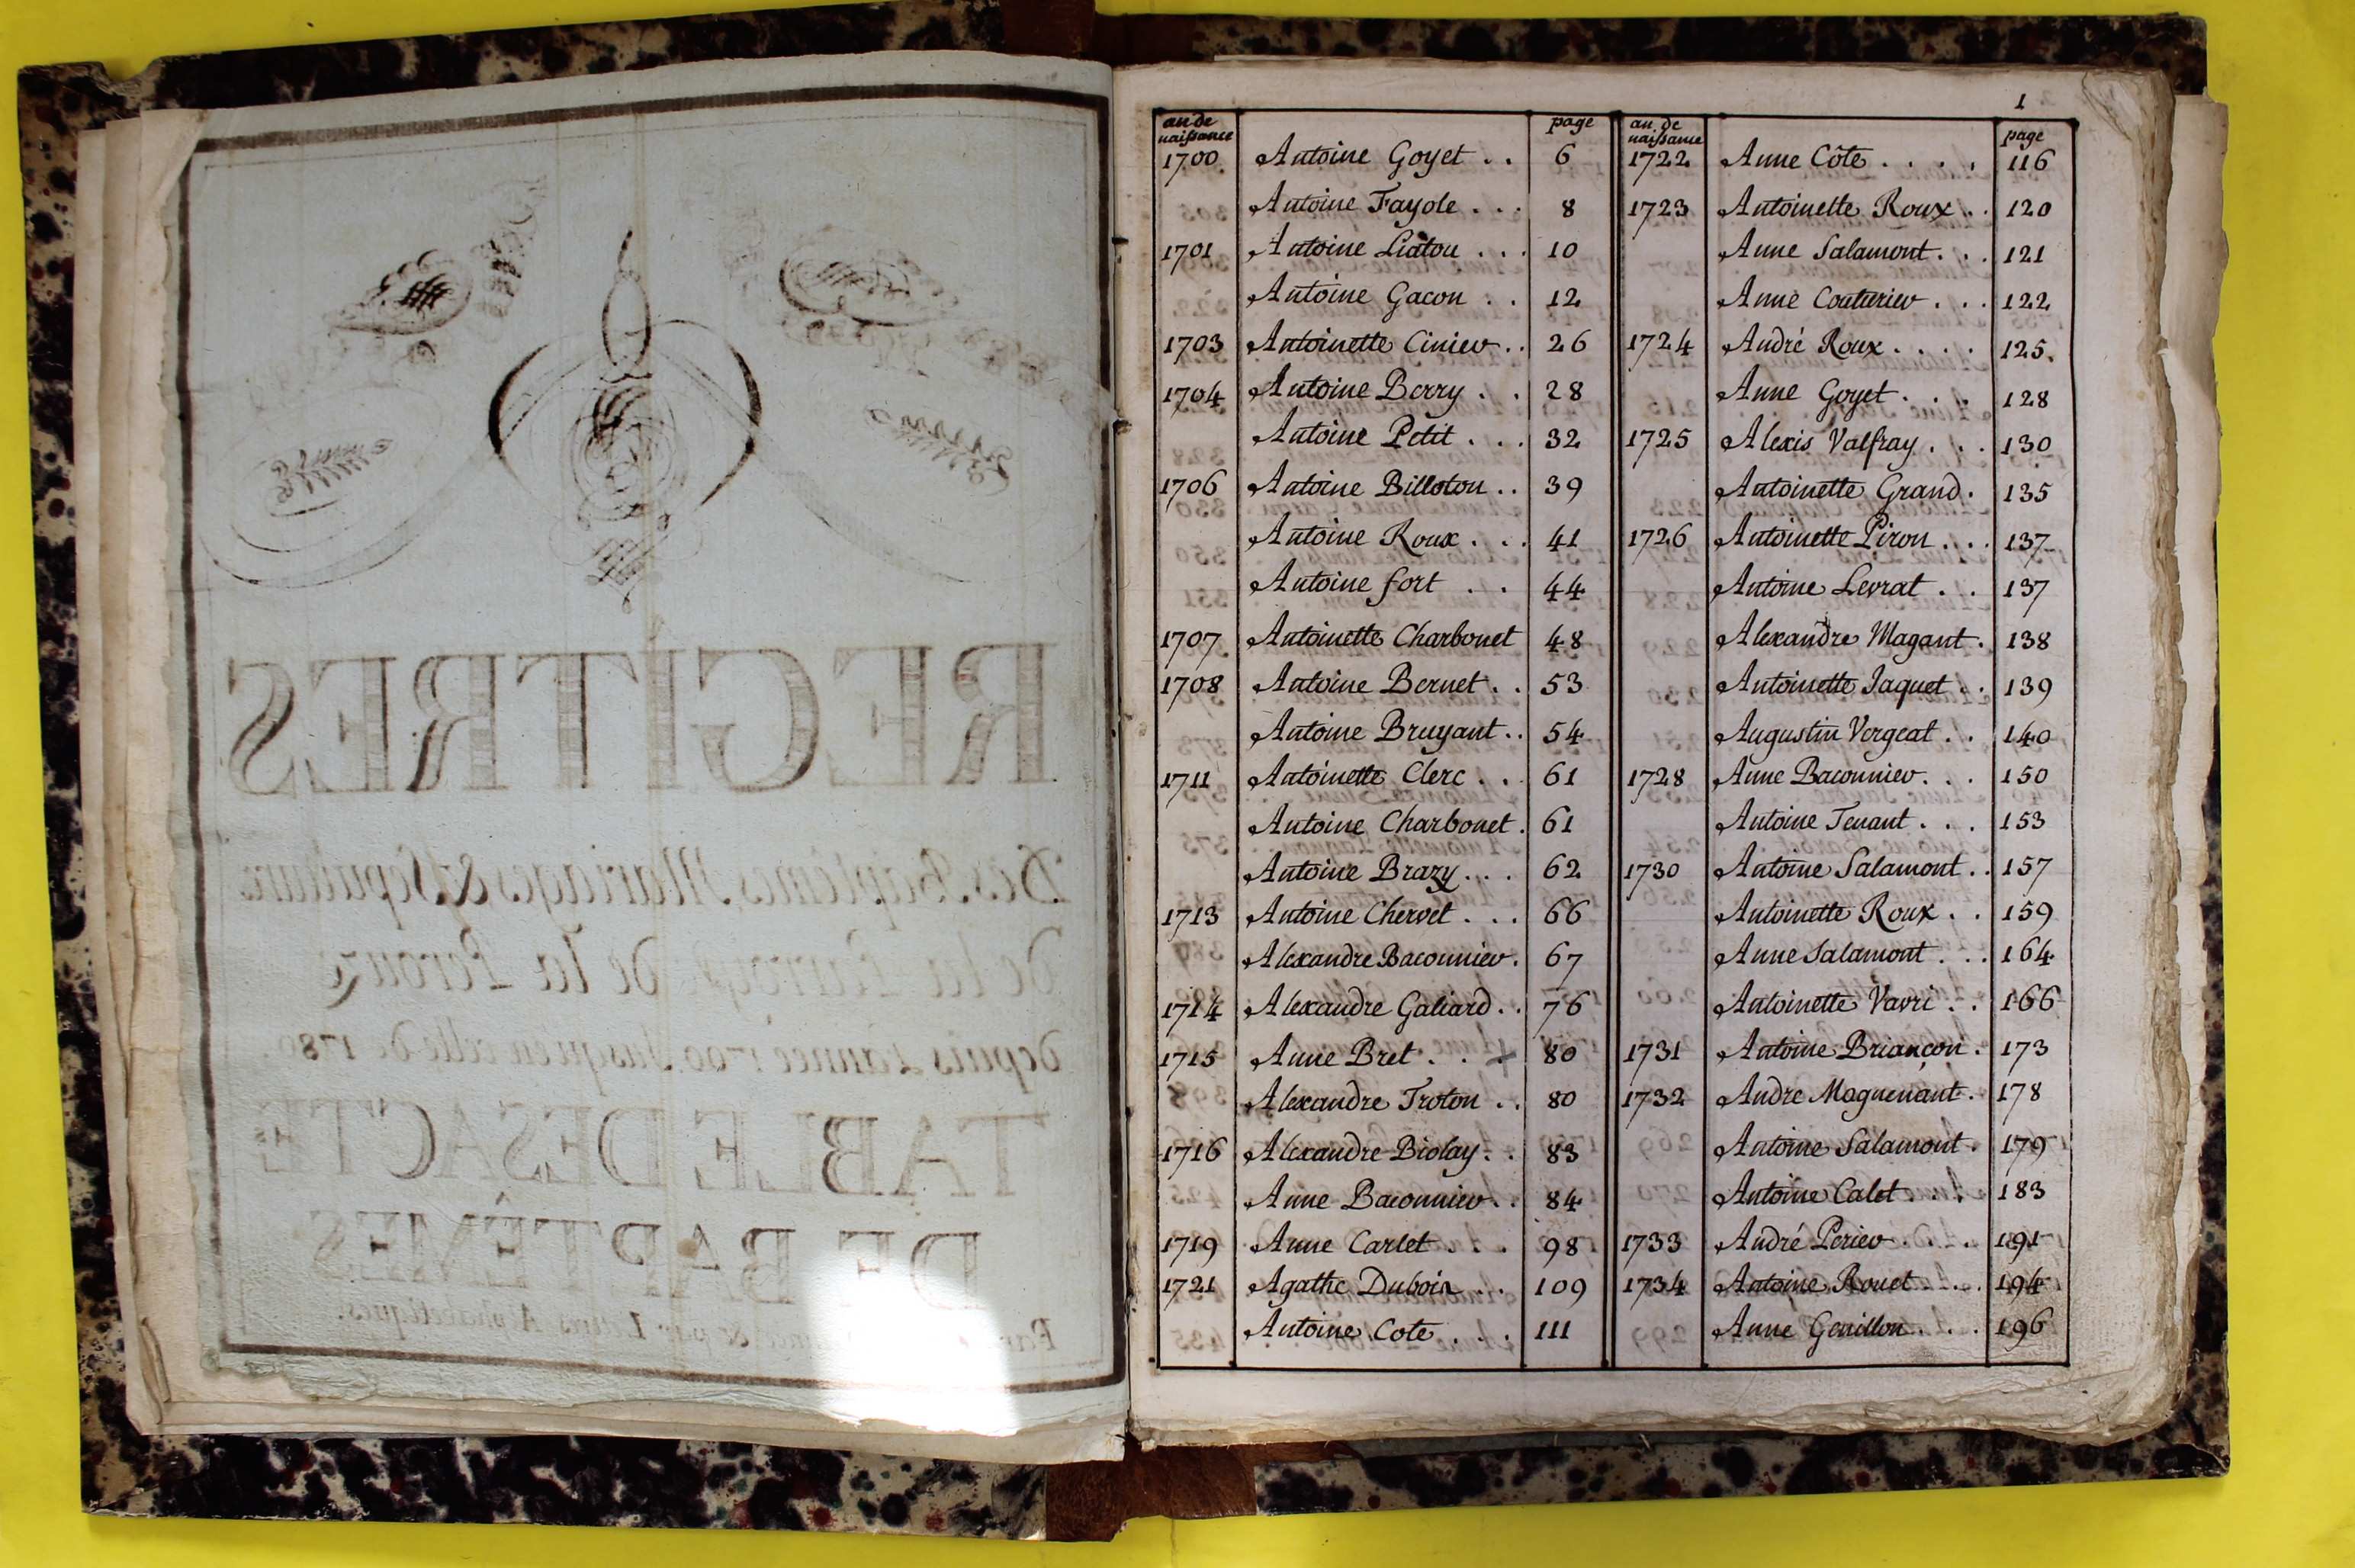 REGITRES
Des Baptêmes, Mariages & Sepultures
de la Parroisse de la Perouze
depuis L'année 1700 Jusqu'en celle de 1780.
TABLE DES ACTES
DE BAPTÊMES
par Lettres Alphabétiques.
1
an de naissance page an de naissance page
1700 Antoine Goyet . . 6 1722 Anne Côte . . . . 116
Antoine Fayole . . . 8 1723 Antoinette Roux . . 120
1701 Antoine Liatou . . . 10 Anne Salamont . . . 121
Antoine Gacon . . 12 Anne Couturier . . . 122
1703 Antoinette Cinier . . 26 1724 André Roux . . . . 125.
1704 Antoine Berry . . 28 Anne Goyet . . . 128
Antoine Petit . . . 32 1725 Alexis Valfray . . . 130
1706 Antoine Billoton . . 39 Antoinette Grand . 135
Antoine Roux . . . 41 1726 Antoinette Piron . . . 137
Antoine fort . . 44 Antoine Levrat . . 137
1707 Antoinette Charbonet 48 Alexandre Magant . 138
1708 Antoine Bernet . . 53 Antoinette Jaquet . . 139
Antoine Bruyant . . 54 Augustin Vergeat . . 140
1711 Antoinette Clerc . . . 61 1728 Anne Baconnier . . . 150
Antoine Charbonet . 61 Antoine Tenant . . . 153
Antoine Brazy . . . 62 1730 Antoine Salamont . . 157
1713 Antoine Chervet . . . 66 Antoinette Roux . . 159
Alexandre Baconnier . 67 Anne Salamont . . . 164
1714 Alexandre Galiard . . 76 Antoinette Vavri . . 166
1715 Anne Bret . . + 80 1731 Antoine Briançon . 173
Alexandre Troton . . 80 1732 Andre Moguenant . 178
1716 Alexandre Biolay . . 83 Antoine Salamont . 179
Anne Baconnier . . 84 Antoine Calet . . . 183
1719 Anne Carlet . . . 98 1733 André Perier . . . 191
1721 Agathe Dubois . . 109 1734 Antoine Rouet . . . 194
Antoine Cote . . . 111 Anne Genillon . . . 196